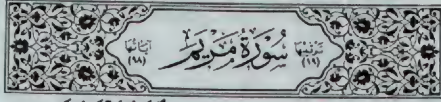 ترتيبها (١٩) سورة مريم آياتها (٩٨)